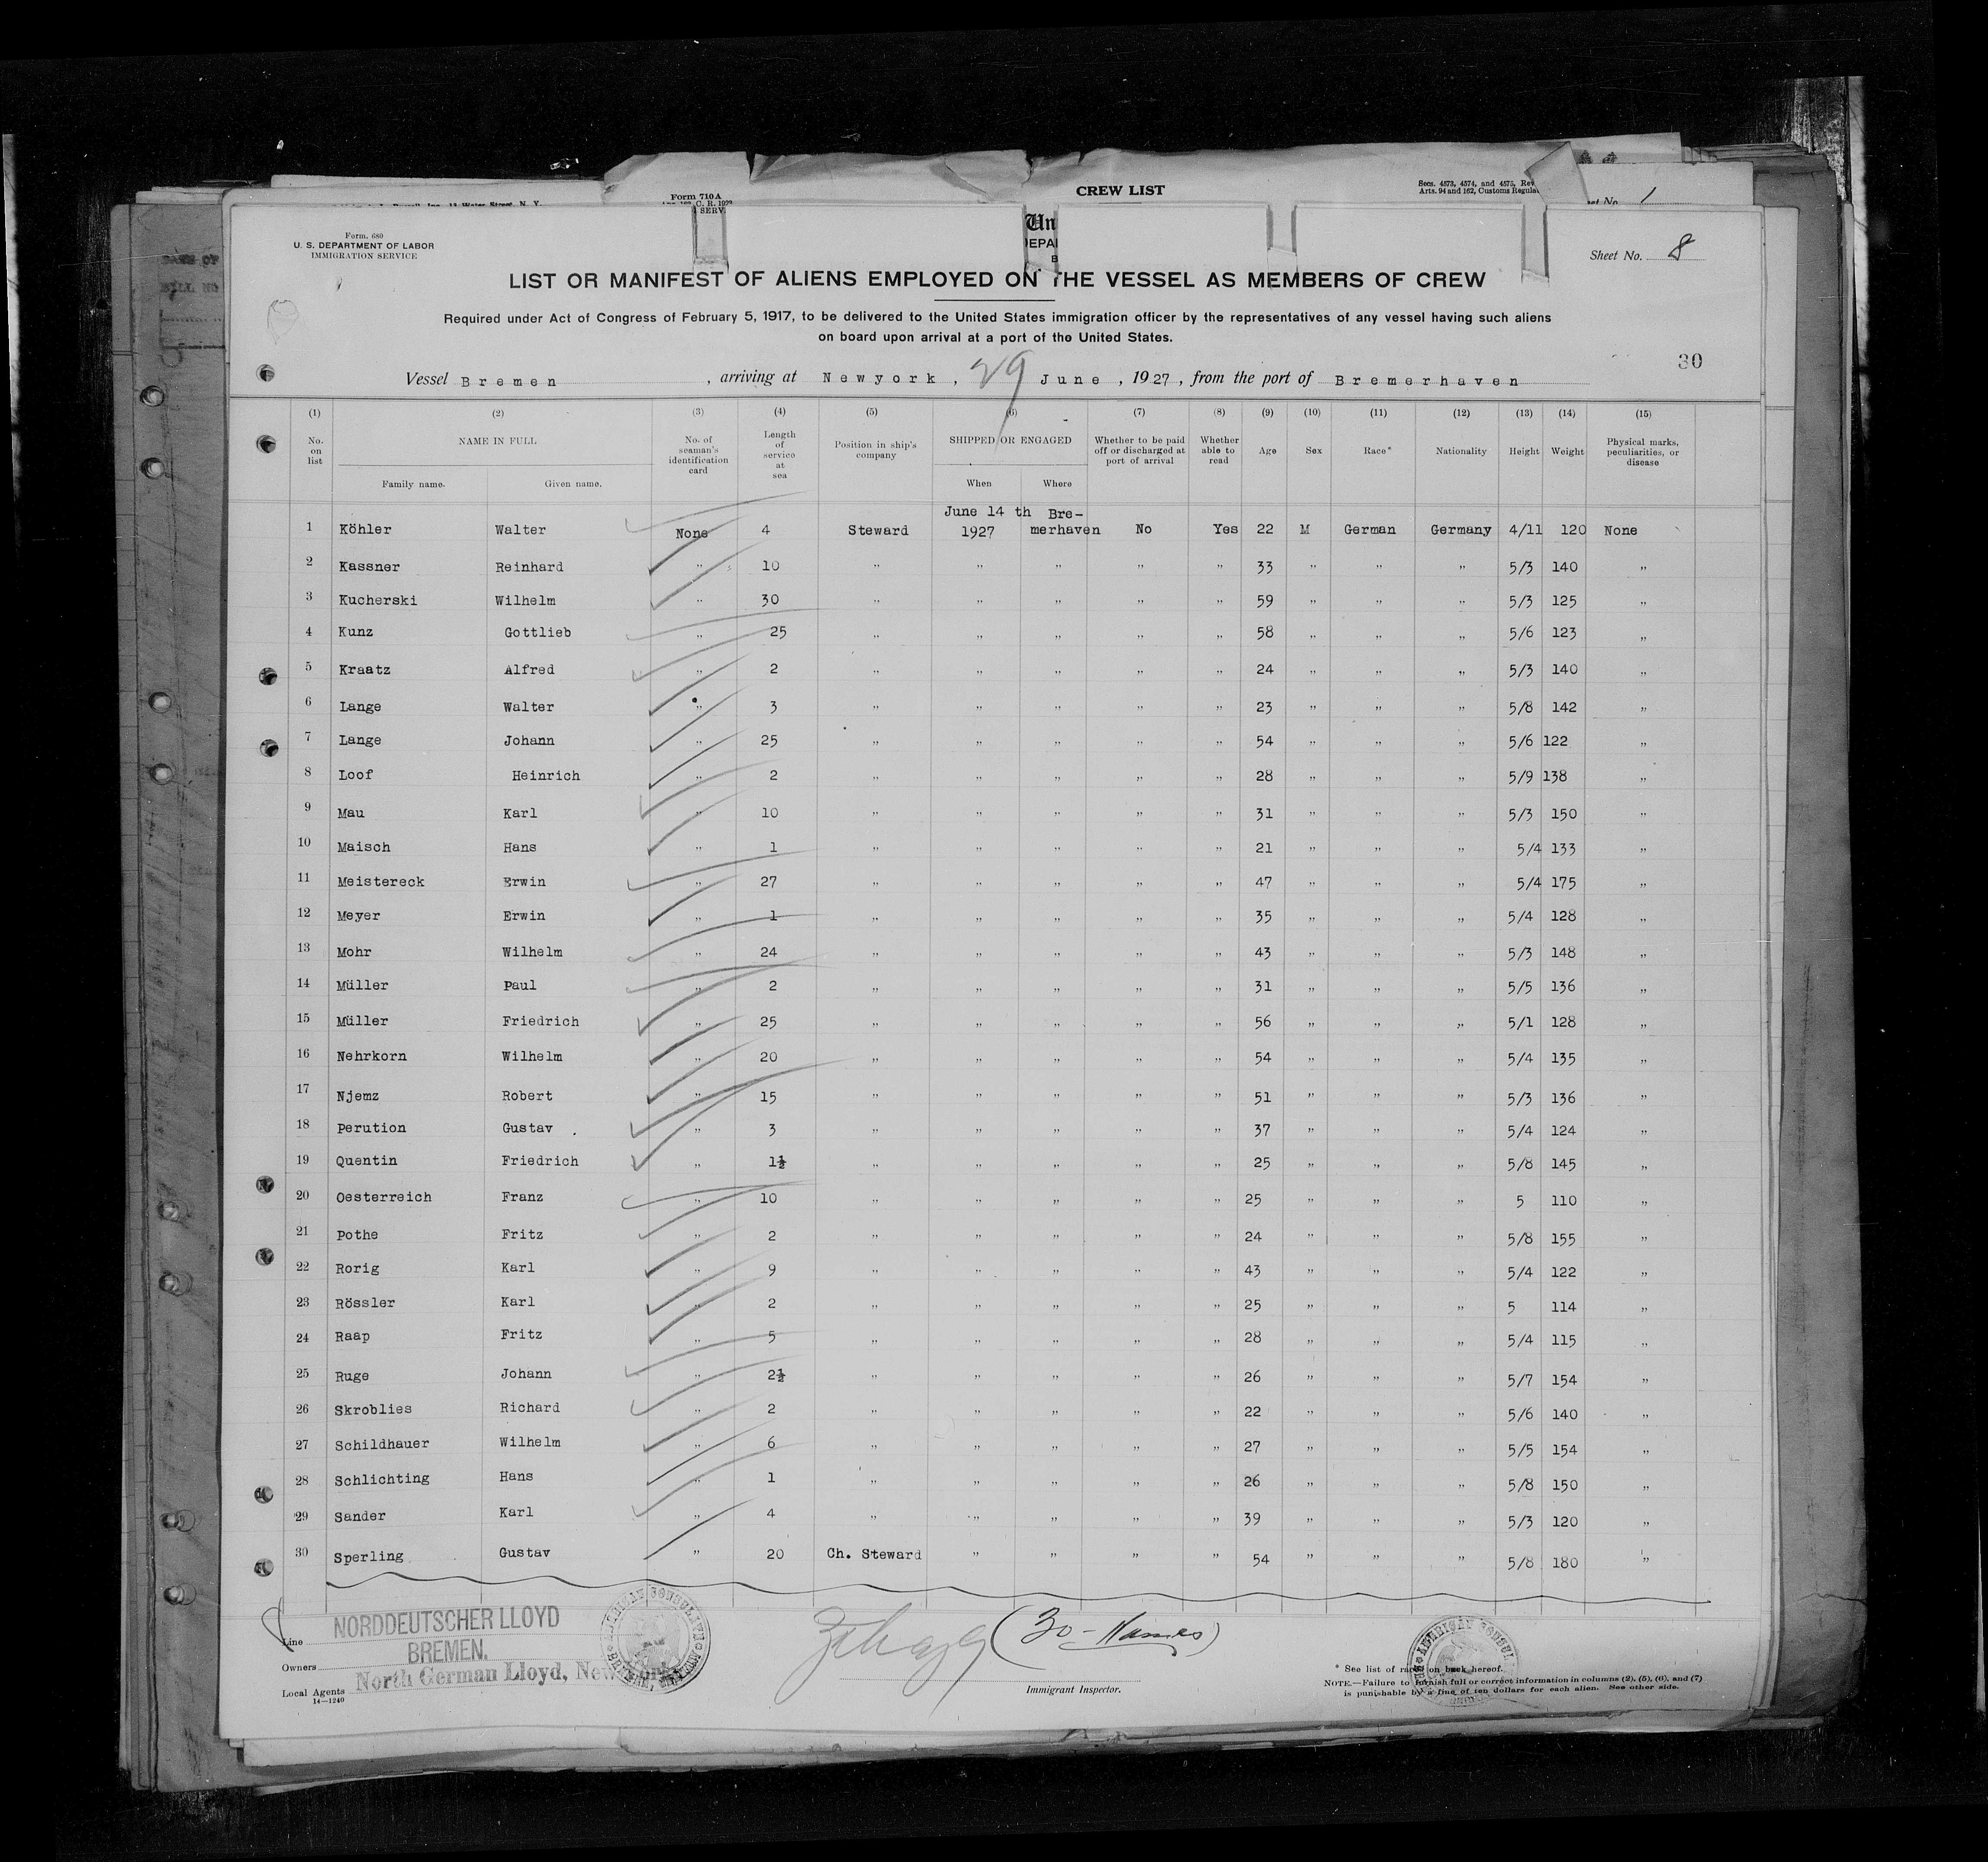 CREW LIST
Form 710A
Secs. 4573, 4574, and 4575, Rev
Arts. 94 and 162, Customs Regula
Form. 680
U. S. DEPARTMENT OF LABOR
IMMIGRATION SERVICE
Sheet No. 8
LIST OR MANIFEST OF ALIENS EMPLOYED ON THE VESSEL AS MEMBERS OF CREW
Required under Act of Congress of February 5, 1917, to be delivered to the United States immigration officer by the representatives of any vessel having such aliens
on board upon arrival at a port of the United States.
30
Vessel Bremen, arriving at Newyork, 29 June, 1927, from the port of Bremerhaven
(1) (2) (3) (4) (5) (6) (7) (8) (9) (10) (11) (12) (13) (14) (15)
No. on list NAME IN FULL Family name. Given name. No. of seaman's identification card Length of service at sea Position in ship's company SHIPPED OR ENGAGED When Where Whether to be paid off or discharged at port of arrival Whether able to read Age Sex Race* Nationality Height Weight Physical marks, peculiarities, or disease
1 Köhler Walter None 4 Steward June 14 th 1927 Bre-merhaven No Yes 22 M German Germany 4/11 120 None
2 Kassner Reinhard " 10 " " " " " 33 " " " 5/3 140 "
3 Kucherski Wilhelm " 30 " " " " " 59 " " " 5/3 125 "
4 Kunz Gottlieb " 25 " " " " " 58 " " " 5/6 123 "
5 Kraatz Alfred " 2 " " " " " 24 " " " 5/3 140 "
6 Lange Walter " 3 " " " " " 23 " " " 5/8 142 "
7 Lange Johann " 25 " " " " " 54 " " " 5/6 122 "
8 Loof Heinrich " 2 " " " " " 28 " " " 5/9 138 "
9 Mau Karl " 10 " " " " " 31 " " " 5/3 150 "
10 Maisch Hans " 1 " " " " " 21 " " " 5/4 133 "
11 Meistereck Erwin " 27 " " " " " 47 " " " 5/4 175 "
12 Meyer Erwin " 1 " " " " " 35 " " " 5/4 128 "
13 Mohr Wilhelm " 24 " " " " " 43 " " " 5/3 148 "
14 Müller Paul " 2 " " " " " 31 " " " 5/5 136 "
15 Müller Friedrich " 25 " " " " " 56 " " " 5/1 128 "
16 Nehrkorn Wilhelm " 20 " " " " " 54 " " " 5/4 135 "
17 Njemz Robert " 15 " " " " " 51 " " " 5/3 136 "
18 Perution Gustav . " 3 " " " " " 37 " " " 5/4 124 "
19 Quentin Friedrich " 1½ " " " " " 25 " " " 5/8 145 "
20 Oesterreich Franz " 10 " " " " " 25 " " " 5 110 "
21 Pothe Fritz " 2 " " " " " 24 " " " 5/8 155 "
22 Rorig Karl " 9 " " " " " 43 " " " 5/4 122 "
23 Rössler Karl " 2 " " " " " 25 " " " 5 114 "
24 Raap Fritz " 5 " " " " " 28 " " " 5/4 115 "
25 Ruge Johann " 2½ " " " " " 26 " " " 5/7 154 "
26 Skroblies Richard " 2 " " " " " 22 " " " 5/6 140 "
27 Schildhauer Wilhelm " 6 " " " " " 27 " " " 5/5 154 "
28 Schlichting Hans " 1 " " " " " 26 " " " 5/8 150 "
29 Sander Karl " 4 " " " " " 39 " " " 5/3 120 "
30 Sperling Gustav " 20 Ch. Steward " " " " 54 " " " 5/8 180 "
Line NORDDEUTSCHER LLOYD
BREMEN.
Owners
Local Agents North German Lloyd, New York
14—1240
(30 - Names)
Immigrant Inspector.
* See list of races on back hereof.
NOTE.—Failure to furnish full or correct information in columns (2), (5), (6), and (7)
is punishable by a fine of ten dollars for each alien. See other side.